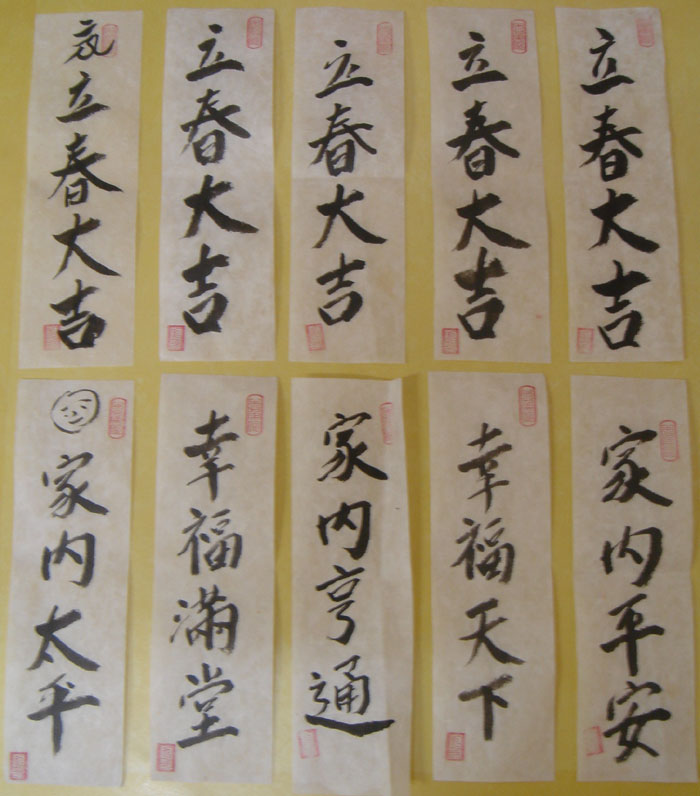 立春大吉
立春大吉
立春大吉
立春大吉
立春大吉
家内太平
幸福滿堂
家内亨通
幸福天下
家内平安